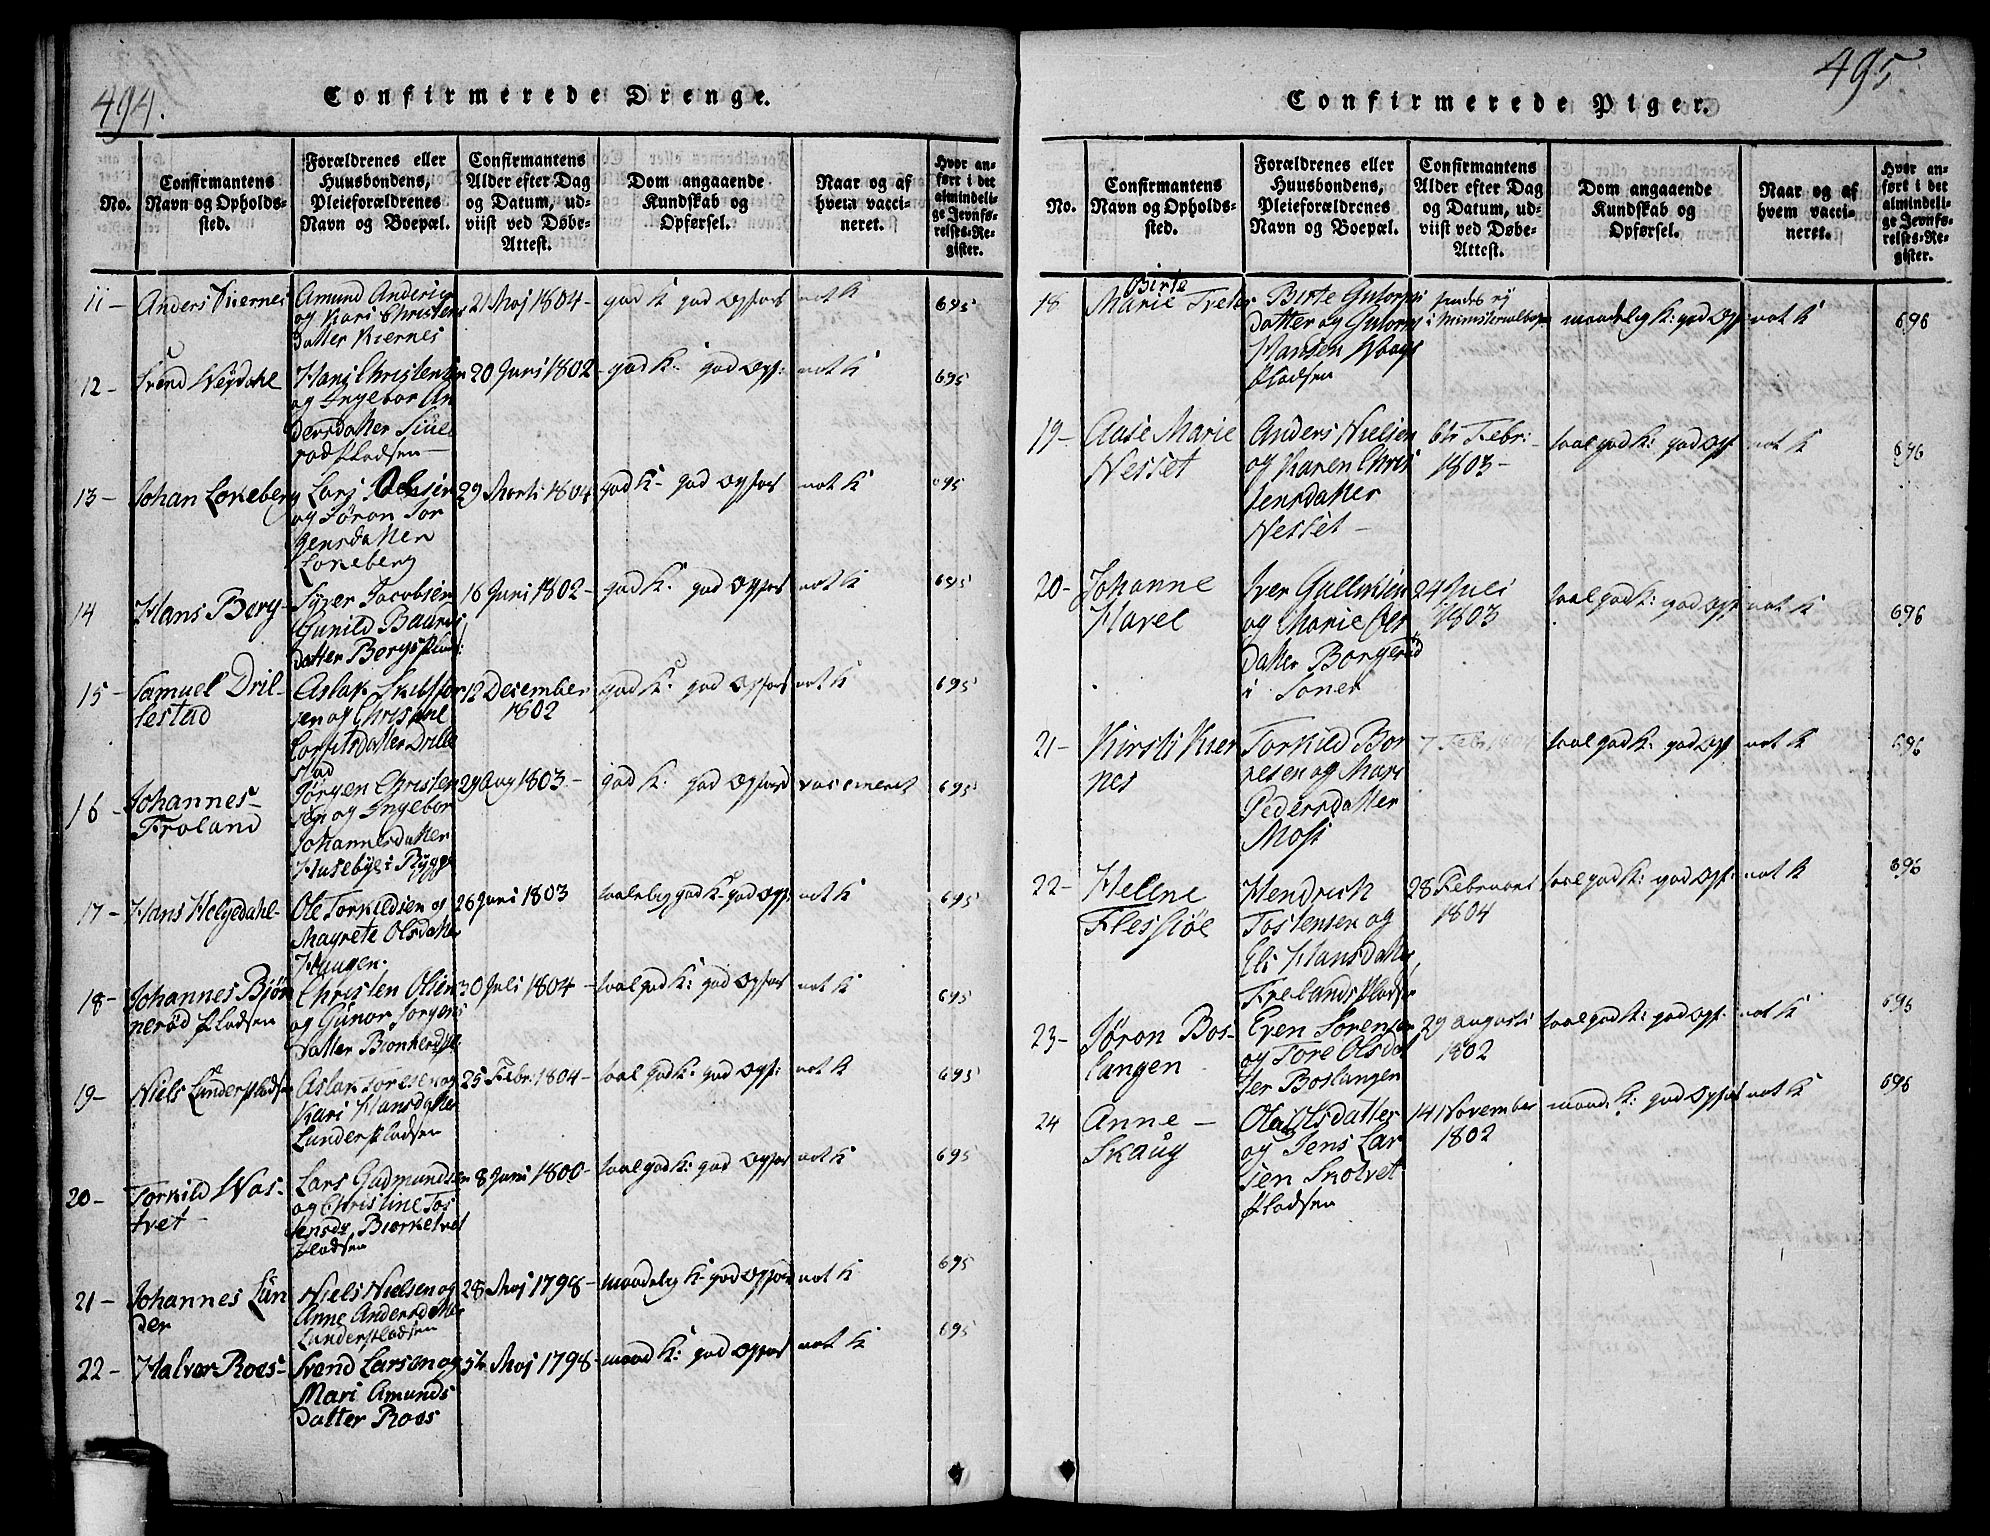 494.
Confirmerede Drenge.
No.
Confirmantens Navn og Opholds-sted.
Forældrenes eller Huusbondens, Pleieforældrenes Navn og Boepæl.
Confirmantens Alder efter Dag og Datum, ud-viist ved Døbe-Attest.
Dom angaaende Kundskab og Opførsel.
Naar og af hvem vacci-neret.
Hvor an-ført i det almindeli-ge Jevnfø-relses-Re-gister.
11 - Anders Kiernes
Amund Anders
og Kari Christens
Datter Kiernes
21 Maj 1804 -
god K god Opførs
not K
695
12 - Svend Weydahl
Hans Christensen
og Ingebor An
dersdatter
Pladsen -
20 Juni 1802 -
god K: god Opf:
not K
695
13 - Johan Lokeberg
Lars Olsen
og Søron Jor
gensdatter
Lokeberg
29 Marti 1804
god K - god Opførs
not K
695
14 Hans Berg -
Syver Jacobsen
Gunild Baards
datter Bergs Plads:
16 Juni 1802 -
god K: god Opførs
not K
695
15 - Samuel Dril-
lestad
Aslak
sen og Christine
datter Drille
stad
12 December
1802
god K: god Opførs
not K
695
16 - Johannes -
Froland
Jørgen Christen
sen og Ingebor
Johannesdatter
Husebye i Rygge
29 Aug 1803 -
god K: god Opførs
vacsineret
695
17 - Hans Helgedahl -
Ole Torkildsen og
Magrete Olsdatter
Haugen.
26 Juni 1803
god K - god Opf:
not K
695
18 - Johannes Bjøn
nerød Pladsen
Christen Olsen
og Gunor Jorgens
Datter
30 Juli 1804 -
taal god K: god Opførs
not K
695
19 - Niels Lunderpladsen
Aslak Toresen og
Kari Hansdatter
Lunderpladsen
25 Febr: 1804 -
taal god K: god Opf:
not K
695
20 - Torkild Was-
tvet
Lars Gudmundsen
og Christine Tos
tensdr Biørketvet
Pladsen
8 Juni 1800 -
taal god K: god Opførs
not K
695
21 - Johannes Lun
der
Niels Nielsen og
Anne Andersdatter
Lunderpladsen
28 Maj 1798 -
maadelig K - god Opførs
not K
695
22 - Halvor Roos -
Svend Larsen og
Mari Amunds
Datter Roos
5te Maj 1798 -
maad K: god Opførs
not K
695
495.
Confirmerede Piger.
No.
Confirmantens Navn og Opholds-sted.
Forældrenes eller Huusbondens, Pleieforældrenes Navn og Boepæl.
Confirmantens Alder efter Dag og Datum, ud-viist ved Døbe-Attest.
Dom angaaende Kundskab og Opførsel.
Naar og af hvem vacci-neret.
Hvor an-ført i det almindeli-ge Jevnfø-relses-Re-gister.
18 Birte
Marie Tveter
Birte Gutorms
Datter og Gutorm
Hansen
Pladsen
findes ej
i Ministerialbogen
maadelig K: god Opf
not K
696
19 - Aase Marie
Nesset
Anders Nielsen
og Karen Chris
tensdatter
Nesset -
6te Febr: -
1803 -
taal god K: god Opf
not K
696
20 - Johanne
Havel
Iver Gulliksen
og Marie Ols
Datter Borgerød
i Soner
24 Juli
1803
taal god K: god Opf
not K
696
21 - Kirsti Kier
nes
Torkild Bor
resen og Mari
Pedersdatter
Moss
7 Febr
taal god K: god Opf
not K
696
22 - Hellne
Flessiøe
Hendrich
Tostensen og
Eli Hansdatter
Frelands Pladsen
28 Februari
1804
taal god K: god Opf:
not K
696
23 - Jøron Bos-
langen
Even Sorensen
og Tore Olsdat
ter Boslangen
29 augusti
1802
taal god K: god Opf:
not K
695
24 Anne -
Skaug
Ola Olsdatter
og Jens Lar
sen Skotvet
Pladsen
14 November
1802
maad K: god Opførs
not K
696